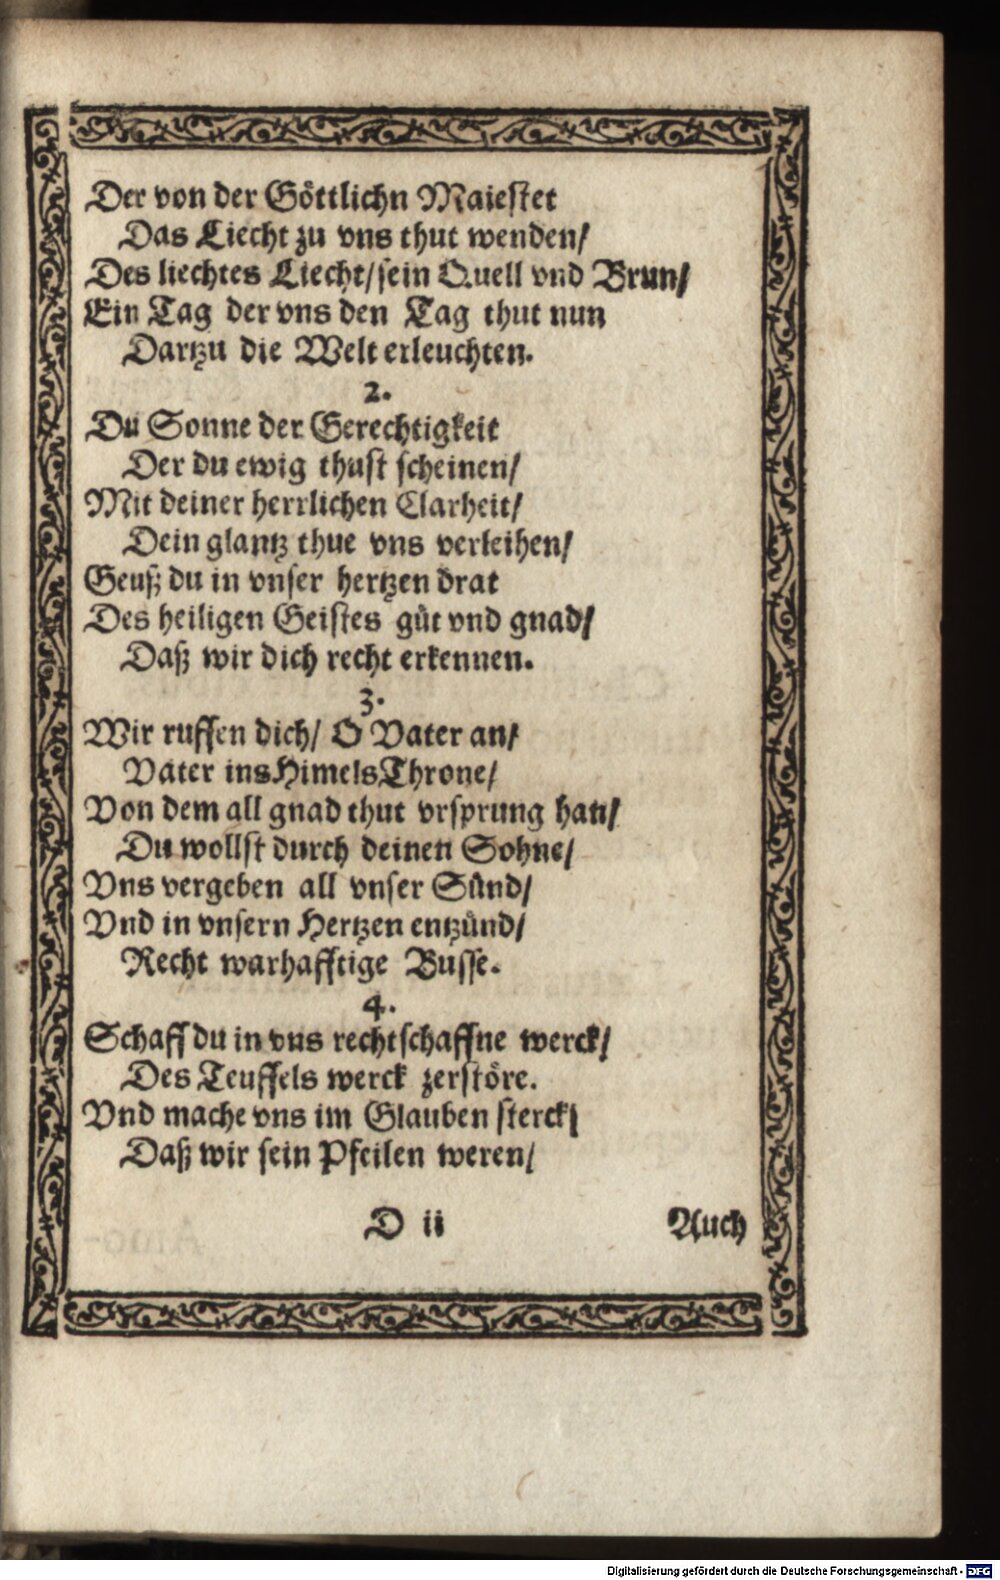 Der von der Göttlichn Maiestet
Das Liecht zu vns thut wenden/
Des liechtes Liecht/sein Quell vnd Brun/
Ein Tag der vns den Tag thut nun
Dartzu die Welt erleuchten.
2.
Du Sonne der Gerechtigkeit
Der du ewig thust scheinen/
Mit deiner herrlichen Clarheit/
Dein glantz thue vns verleihen/
Geuß du in vnser hertzen drat
Des heiligen Geistes güt vnd gnad/
Daß wir dich recht erkennen.
3.
Wir ruffen dich/ O Vater an/
Vater ins Himels Throne/
Von dem all gnad thut vrsprung han/
Du wollst durch deinen Sohne/
Vns vergeben all vnser Sünd/
Vnd in vnsern Hertzen entzünd/
Recht warhafftige Busse.
4.
Schaff du in vns rechtschaffne werck/
Des Teuffels werck zerstöre.
Vnd mache vns im Glauben sterck/
Daß wir sein Pfeilen weren/
D ii Auch
Digitalisierung gefördert durch die Deutsche Forschungsgemeinschaft - DFG